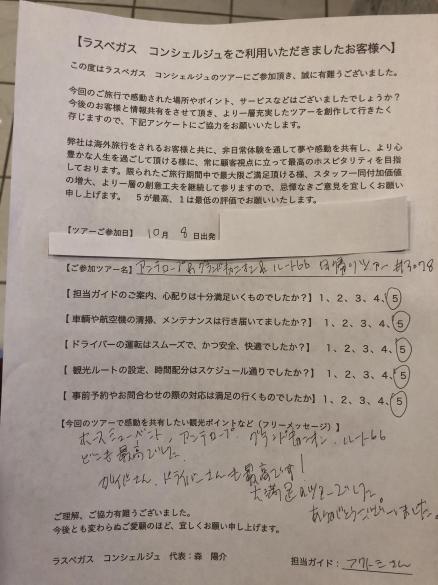 【ラスベガス　コンシェルジュをご利用いただきましたお客様へ】
この度はラスベガス　コンシェルジュのツアーにご参加頂き、誠に有難うございました。
今回のご旅行で感動された場所やポイント、サービスなどはございましたでしょうか？
今後のお客様と情報共有をさせて頂き、より一層充実したツアーを創作して行きたく
存じますので、下記アンケートにご協力をお願いいたします。
弊社は海外旅行をされるお客様と共に、非日常体験を通して夢や感動を共有し、より心
豊かな人生を過ごして頂ける様に、常に顧客視点に立って最高のホスピタリティを目指
しております。限られたご旅行期間中で最大限ご満足頂ける様、スタッフ一同付加価値
の増大、より一層の創意工夫を継続して参りますので、忌憚なきご意見を宜しくお願い
申し上げます。　5が最高、1は最低の評価でお願いいたします。
【ツアーご参加日】　10月　8日出発
【ご参加ツアー名】アンテロープ&グランドキャニオン&ルート66 日帰りツアー #3078
【担当ガイドのご案内、心配りは十分満足いくものでしたか？】1、2、3、4、5
【車輌や航空機の清掃、メンテナンスは行き届いてましたか？】1、2、3、4、5
【ドライバーの運転はスムーズで、かつ安全、快適でしたか？】1、2、3、4、5
【観光ルートの設定、時間配分はスケジュール通りでしたか？】1、2、3、4、5
【事前予約やお問合わせの際の対応は満足の行くものでしたか？】1、2、3、4、5
【今回のツアーで感動を共有したい観光ポイントなど（フリーメッセージ）】
ホースシューベント、アンテロープ、グランドキャニオン、ルート66
どこも最高でした。
ガイドさん、ドライバーさんも最高です！
大満足のツアーでした。
ありがとうございました。
ご理解、ご協力有難うございました。
今後とも変わらぬご愛顧のほど、宜しくお願い申し上げます。
ラスベガス　コンシェルジュ　代表：森　陽介
担当ガイド：　さん